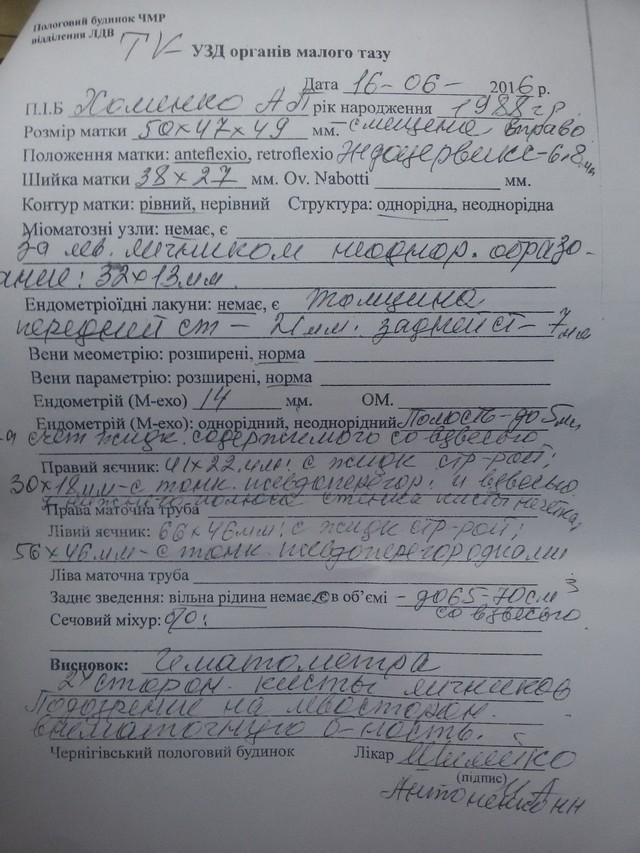 Пологовий будинок ЧМР
відділення ЛДВ
TV УЗД органів малого тазу
Дата 16-06- 2016 р.
П.І.Б Хоменко А П рік народження 1988 г р.
Розмір матки 50х47х49 мм. - смещена вправо
Положення матки: anteflexio, retroflexio Эндоцервикс-6,8 мм
Шийка матки 38х27 мм. Ov. Nabotti мм.
Контур матки: рівний, нерівний Структура: однорідна, неоднорідна
Міоматозні узли: немає, є
за лев. яичником неоднор. образо-
ание: 32х13мм.
Ендометріоїдні лакуни: немає, є Толщина
передней ст - 21мм. задней ст - 7мм
Вени меометрію: розширені, норма
Вени параметрію: розширені, норма
Ендометрій (М-ехо) 14 мм. ОМ.
Ендометрій (М-ехо): однорідний, неоднорідний Полость-до 5мм
счет жидк. содержимого со взвесью
Правий яєчник: 41х22.мм: с жидк стр-рой;
30х18мм-с тонк. псевдоперегор. и взвесью
Права маточна труба
Лівий яєчник: 66х46мм: с жидк стр-рой;
56х46мм-с тонк. псевдоперегородками
Ліва маточна труба
Заднє зведення: вільна рідина немає, є в об’ємі - до 65-70см3
Сечовий міхур: со взвесью
Висновок: Гематометра
2х сторон. кисты яичников
Подозрение на левосторон.
внематочную б-ность.
Чернігівський пологовий будинок Лікар
(підпис)